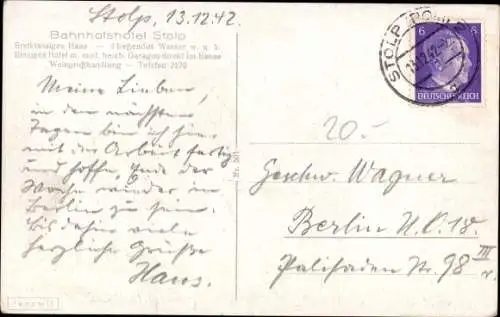 Stolp, 13.12.42.
Bahnhofshotel Stolp
Erstklassiges Haus — Fliessendes Wasser w. u. k.
Einziges Hotel m. mod. heizb. Garagen direkt im Hause
Weingroßhandlung — Telefon 2070
STOLP (POM)
6 6
DEUTSCHES REICH
Meine Lieben,
in den nächsten
Tagen bin ich hier
mit der Arbeit fertig
und hoffe, Ende der
Woche wieder in
Berlin zu sein.
Bis dahin viele
herzliche Grüße
Hans.
20.-
Geschw. Wagner
Berlin N.O. 18.
Palisaden Nr. 98 III
r.